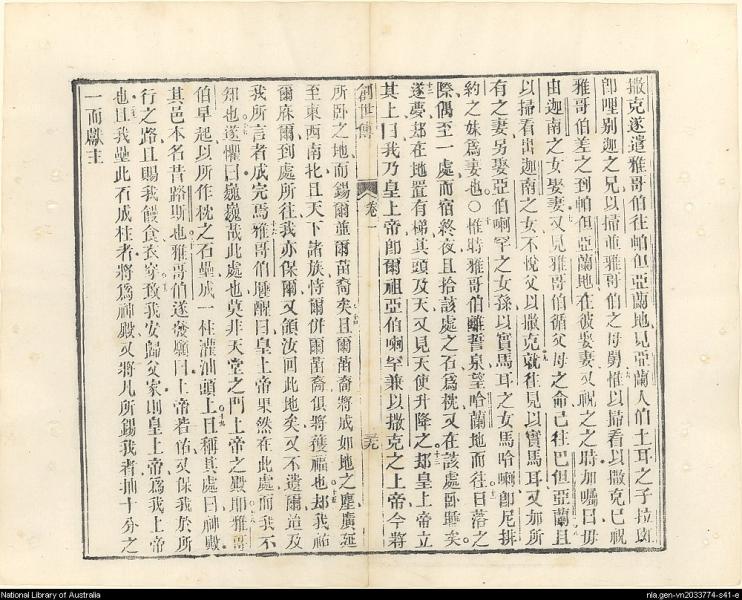 撒克遂遣雅哥伯往帕但亞蘭地見亞蘭人伯土耳之子拉班
卽哩別迦之兄以掃並雅哥伯之母舅惟以掃看以撒克已祝
雅哥伯差之到帕但亞蘭地在彼娶妻又祝之之時加囑曰毋
由迦南之女娶妻又見雅哥伯循父母之命已往巴但亞蘭且
以掃看出迦南之女不悅父以撒克就往見以實馬耳又加所
有之妻另娶亞伯喇罕之女孫以實馬耳之女馬哈喇卽尼排
約之妹爲妻也○惟時雅哥伯離誓泉望哈蘭地而往日落之
際偶至一處而宿終夜且拾該處之石爲枕又在該處卧睡矣
遂夢却在地置有梯其頭及天又見天使升降之却皇上帝立
其上曰我乃皇上帝卽爾祖亞伯喇罕兼以撒克之上帝今將
創世傳 卷一 三九
所卧之地而錫爾並爾苗裔矣且爾苗裔將成如地之塵廣延
至東西南北且天下諸族恃爾併爾苗裔俱將獲福也却我祐
爾庥爾到處所往我亦保爾又領汝回此地矣又不遺爾造及
我所言者成完焉雅哥伯睡醒曰皇上帝果然在此處而我不
知也遂懼曰巍巍哉此處也莫非天堂之門上帝之殿耶雅哥
伯早起以所作枕之石壘成一柱灌油頭上曰稱其處曰神殿
其邑本名昔路斯也雅哥伯遂發願曰上帝若佑又保我於所
行之路且賜我餽食衣穿致我安歸父家則皇上帝爲我上帝
也且我壘此石成柱者將爲神殿又將凡所錫我者抽十分之
一而獻主
National Library of Australia
nla.gen-vn2033774-s41-e